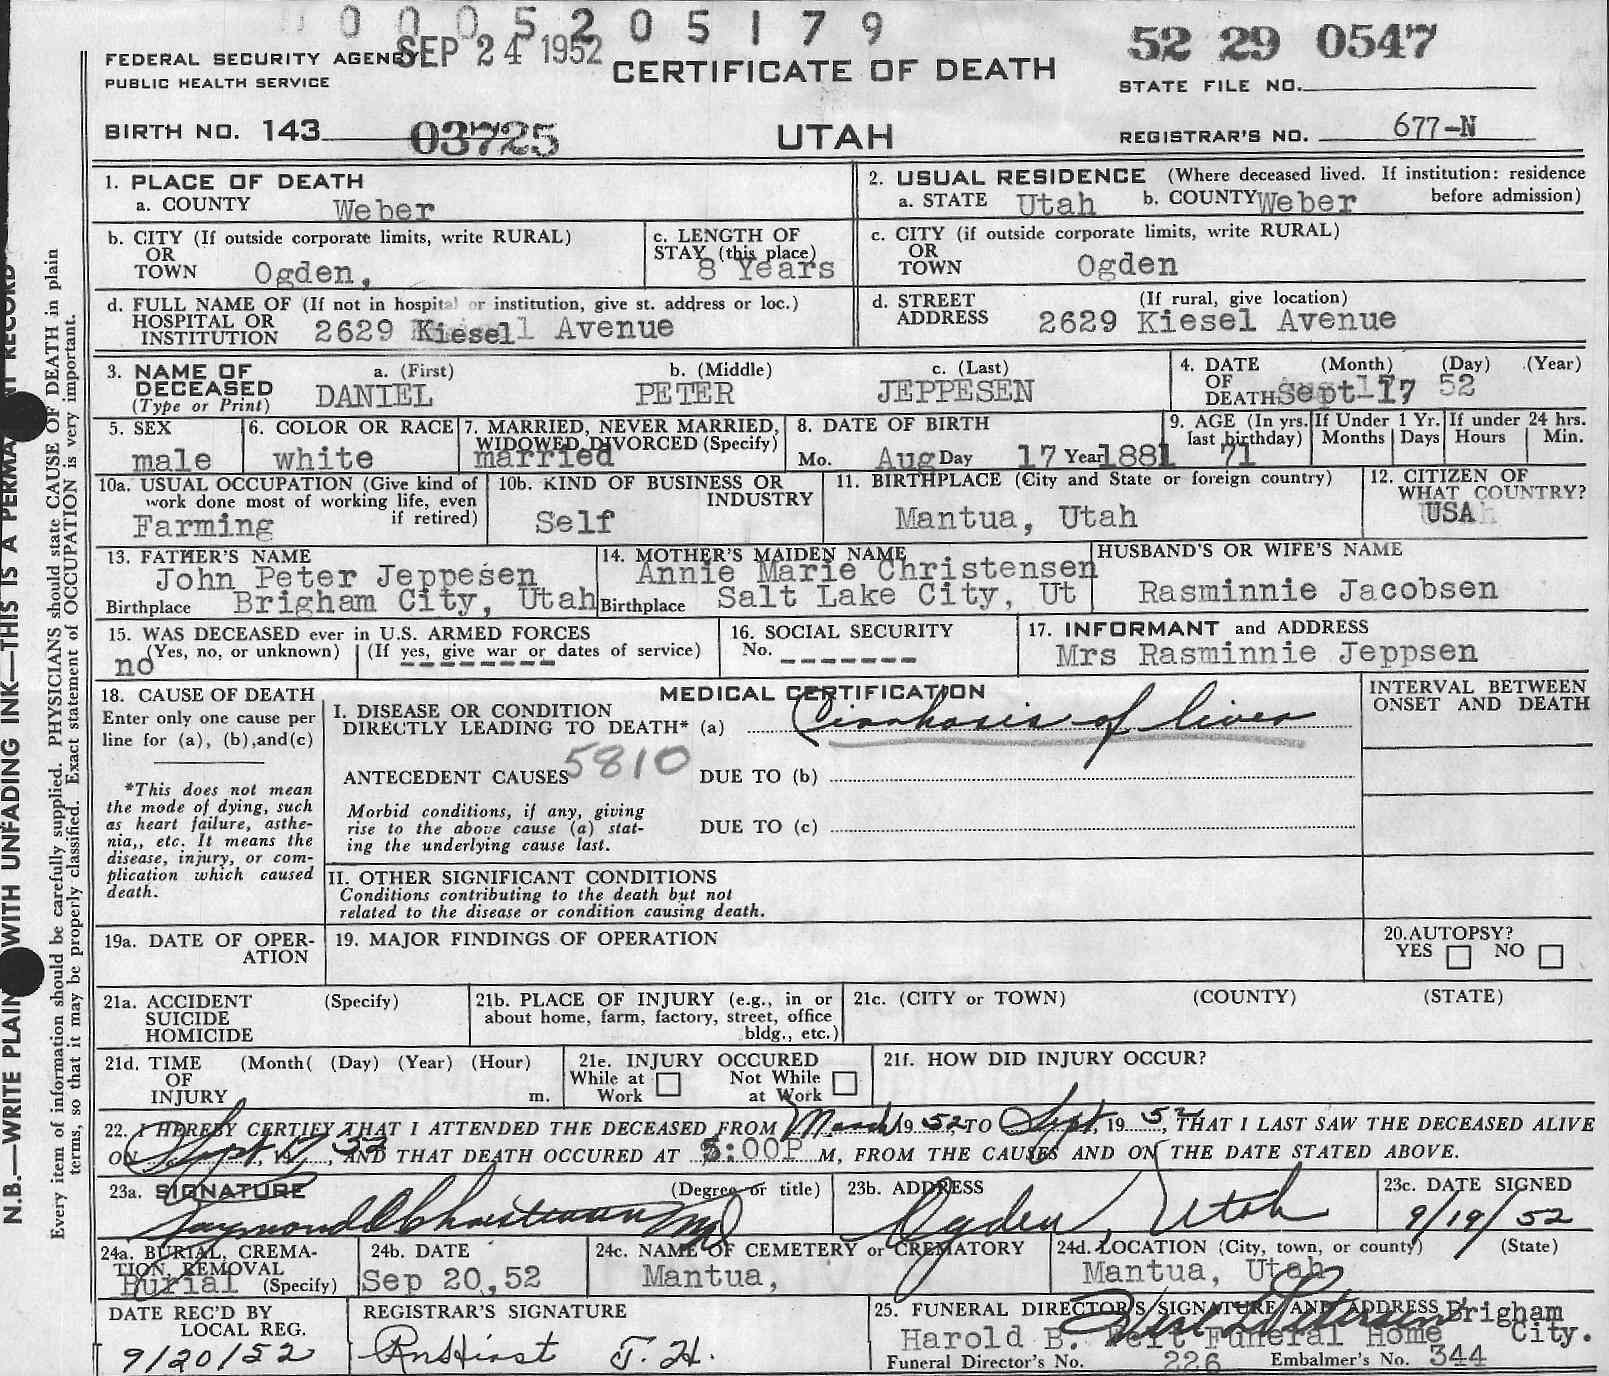 0 0 0 5 2 0 5 1 7 9
SEP 24 1952
52 29 0547
FEDERAL SECURITY AGENCY
PUBLIC HEALTH SERVICE
CERTIFICATE OF DEATH
STATE FILE NO.
BIRTH NO. 143 03725
UTAH
REGISTRAR'S NO. 677-N
1. PLACE OF DEATH
a. COUNTY Weber
2. USUAL RESIDENCE (Where deceased lived. If institution: residence before admission)
a. STATE Utah b. COUNTY Weber
b. CITY (If outside corporate limits, write RURAL)
OR
TOWN Ogden,
c. LENGTH OF
STAY (this place)
8 Years
c. CITY (if outside corporate limits, write RURAL)
OR
TOWN Ogden
d. FULL NAME OF (If not in hospital or institution, give st. address or loc.)
HOSPITAL OR
INSTITUTION 2629 Kiesel Avenue
d. STREET (If rural, give location)
ADDRESS 2629 Kiesel Avenue
3. NAME OF
DECEASED
(Type or Print)
a. (First) b. (Middle) c. (Last)
DANIEL PETER JEPPESEN
4. DATE (Month) (Day) (Year)
OF
DEATH Sept 17 52
5. SEX
male
6. COLOR OR RACE
white
7. MARRIED, NEVER MARRIED,
WIDOWED, DIVORCED (Specify)
married
8. DATE OF BIRTH
Mo. Aug Day 17 Year 1881
9. AGE (In yrs.
last birthday)
71
If Under 1 Yr.
Months Days
If under 24 hrs.
Hours Min.
10a. USUAL OCCUPATION (Give kind of
work done most of working life, even
if retired)
Farming
10b. KIND OF BUSINESS OR
INDUSTRY
Self
11. BIRTHPLACE (City and State or foreign country)
Mantua, Utah
12. CITIZEN OF
WHAT COUNTRY?
USA
13. FATHER'S NAME
John Peter Jeppesen
Birthplace Brigham City, Utah
14. MOTHER'S MAIDEN NAME
Annie Marie Christensen
Birthplace Salt Lake City, Ut
HUSBAND'S OR WIFE'S NAME
Rasminnie Jacobsen
15. WAS DECEASED ever in U.S. ARMED FORCES
(Yes, no, or unknown) (If yes, give war or dates of service)
no
16. SOCIAL SECURITY
No.
17. INFORMANT and ADDRESS
Mrs Rasminnie Jeppsen
18. CAUSE OF DEATH
Enter only one cause per
line for (a), (b),and(c)
*This does not mean
the mode of dying, such
as heart failure, asthe-
nia,, etc. It means the
disease, injury, or com-
plication which caused
death.
MEDICAL CERTIFICATION
I. DISEASE OR CONDITION
DIRECTLY LEADING TO DEATH* (a) Cirrhosis of liver
5810
ANTECEDENT CAUSES DUE TO (b)
Morbid conditions, if any, giving
rise to the above cause (a) stat-
ing the underlying cause last.
DUE TO (c)
II. OTHER SIGNIFICANT CONDITIONS
Conditions contributing to the death but not
related to the disease or condition causing death.
INTERVAL BETWEEN
ONSET AND DEATH
19a. DATE OF OPER-
ATION
19. MAJOR FINDINGS OF OPERATION
20.AUTOPSY?
YES NO
21a. ACCIDENT (Specify)
SUICIDE
HOMICIDE
21b. PLACE OF INJURY (e.g., in or
about home, farm, factory, street, office
bldg., etc.)
21c. (CITY or TOWN) (COUNTY) (STATE)
21d. TIME (Month( (Day) (Year) (Hour)
OF
INJURY m.
21e. INJURY OCCURED
While at Not While
Work at Work
21f. HOW DID INJURY OCCUR?
22. I HEREBY CERTIFY THAT I ATTENDED THE DECEASED FROM March 19 52, TO Sept, 19 52, THAT I LAST SAW THE DECEASED ALIVE
ON Sept 17 52, AND THAT DEATH OCCURED AT 5:00P M, FROM THE CAUSES AND ON THE DATE STATED ABOVE.
23a. SIGNATURE (Degree or title)
Raymond Christianson MD
23b. ADDRESS
Ogden, Utah
23c. DATE SIGNED
9/19/52
24a. BURIAL, CREMA-
TION, REMOVAL
(Specify)
Burial
24b. DATE
Sep 20,52
24c. NAME OF CEMETERY or CREMATORY
Mantua,
24d. LOCATION (City, town, or county) (State)
Mantua, Utah
DATE REC'D BY
LOCAL REG.
9/20/52
REGISTRAR'S SIGNATURE
J. H.
25. FUNERAL DIRECTOR'S SIGNATURE AND ADDRESS
Harold B. Felt Funeral Home Brigham City.
Funeral Director's No. 226 Embalmer's No. 344
N.B.—WRITE PLAIN WITH UNFADING INK—THIS IS A PERMA RECORD
Every item of information should be carefully supplied. PHYSICIANS should state CAUSE OF DEATH in plain
terms, so that it may be properly classified. Exact statement of OCCUPATION is very important.